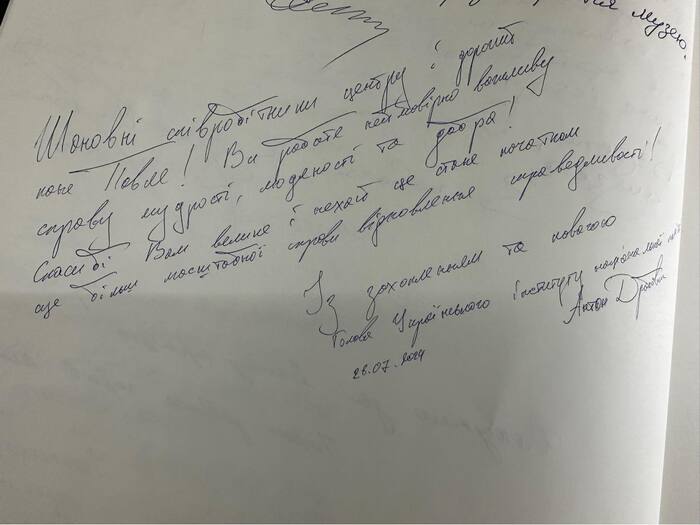 музею.
Шановні співробітники центру і дорогий
пане Павле! Ви робите неймовірно важливу
справу мудрості, людяності та добра!
Спасибі Вам велике і нехай це стане початком
ще більш масштабної справи відновлення справедливості!
Із захопленням та повагою
Голова Українського інституту національної пам'яті
Антон Дробович
28.07.2024